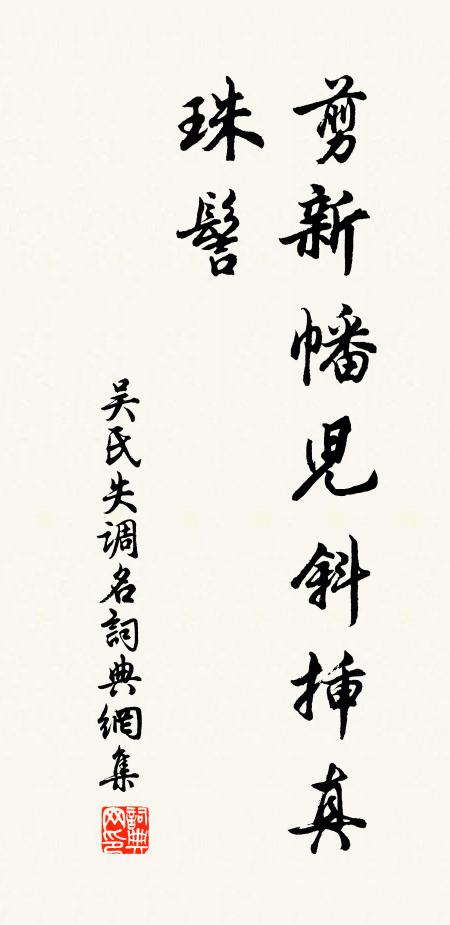 剪新幡兒斜插真
珠髻
吴氏失调名詞典網集
詞典網印